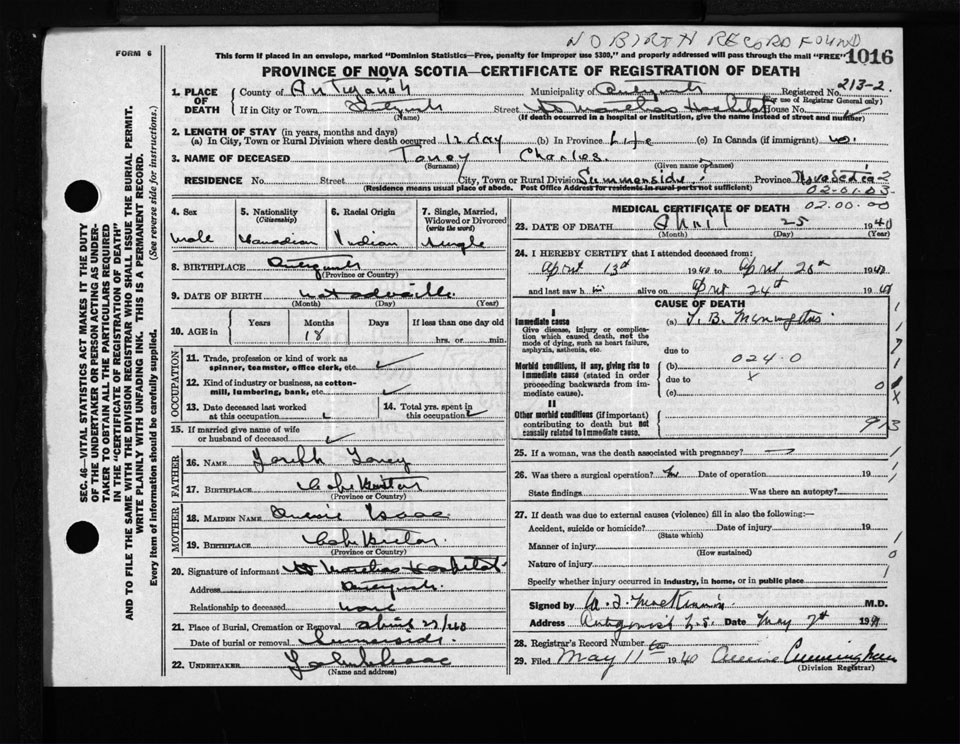 NO BIRTH RECORD FOUND
FORM 6
This form if placed in an envelope, marked "Dominion Statistics—Free, penalty for improper use $300," and properly addressed will pass through the mail "FREE"
1016
PROVINCE OF NOVA SCOTIA—CERTIFICATE OF REGISTRATION OF DEATH
213-2
1. PLACE OF DEATH
County of Antigonish Municipality of Antigonish Registered No.
(For use of Registrar General only)
If in City or Town Antigonish Street St Marthas Hospital House No.
(Name) (If death occurred in a hospital or institution, give the name instead of street and number)
2. LENGTH OF STAY (in years, months and days)
(a) In City, Town or Rural Division where death occurred 12 day (b) In Province Life (c) In Canada (if immigrant) no.
3. NAME OF DECEASED Toney Charles.
(Surname) (Given name or names)
RESIDENCE No. Street City, Town or Rural Division Summerside Province Nova Scotia
(Residence means usual place of abode. Post Office Address for residents in rural parts not sufficient)
02-01-03-
02-00-00
4. Sex
Male
5. Nationality
(Citizenship)
Canadian
6. Racial Origin
Indian
7. Single, Married, Widowed or Divorced
(write the word)
Single
8. BIRTHPLACE Antigonish
(Province or Country)
9. DATE OF BIRTH not
(Month) (Day) (Year)
10. AGE in
Years Months Days If less than one day old
18
hrs. or min.
OCCUPATION
11. Trade, profession or kind of work as spinner, teamster, office clerk, etc. ✓
12. Kind of industry or business, as cotton-mill, lumbering, bank, etc. ✓
13. Date deceased last worked at this occupation ✓
14. Total yrs. spent in this occupation ✓
15. If married give name of wife or husband of deceased ✓
FATHER
16. NAME Joseph Toney
17. BIRTHPLACE Cape Breton
(Province or Country)
MOTHER
18. MAIDEN NAME Isaac
19. BIRTHPLACE Cape Breton
(Province or Country)
20. Signature of informant St Marthas Hospital
Address Antigonish
Relationship to deceased none
21. Place of Burial, Cremation or Removal
Date of burial or removal Summerside
22. UNDERTAKER John Isaac
(Name and address)
MEDICAL CERTIFICATE OF DEATH
23. DATE OF DEATH April 25 1940
(Month) (Day) (Year)
24. I HEREBY CERTIFY that I attended deceased from:
April 13th 1940 to April 25th 1940
and last saw h im alive on April 24th 1940
CAUSE OF DEATH
I
Immediate cause
Give disease, injury or complication which caused death, not the mode of dying, such as heart failure, asphyxia, asthenia, etc.
(a) T. B. Meningitis
due to
Morbid conditions, if any, giving rise to immediate cause (stated in order proceeding backwards from immediate cause).
(b) 024.0
due to x
(c)
II
Other morbid conditions (if important) contributing to death but not causally related to immediate cause.
25. If a woman, was the death associated with pregnancy?
26. Was there a surgical operation? No Date of operation 19
State findings Was there an autopsy?
27. If death was due to external causes (violence) fill in also the following:—
Accident, suicide or homicide? Date of injury 19
(State which)
Manner of injury
(How sustained)
Nature of injury
Specify whether injury occurred in industry, in home, or in public place
Signed by W. F. MacKinnon M.D.
Address Antigonish N.S. Date May 7th 19
28. Registrar's Record Number
29. Filed May 11th 1940 Cunningham
(Division Registrar)
SEC. 46—VITAL STATISTICS ACT MAKES IT THE DUTY
OF THE UNDERTAKER OR PERSON ACTING AS UNDERTAKER TO OBTAIN ALL THE PARTICULARS REQUIRED
IN THE "CERTIFICATE OF REGISTRATION OF DEATH"
AND TO FILE THE SAME WITH THE DIVISION REGISTRAR WHO SHALL ISSUE THE BURIAL PERMIT.
WRITE PLAINLY WITH UNFADING INK. THIS IS A PERMANENT RECORD.
Every item of information should be carefully supplied. (See reverse side for instructions.)